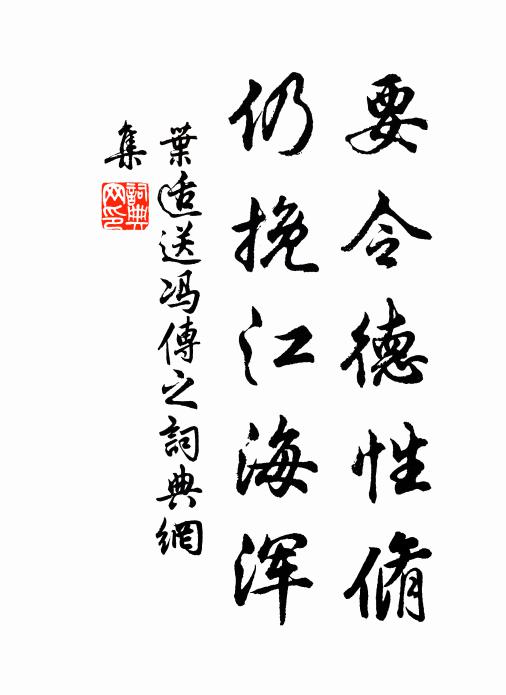 要令德性脩
仍挽江海浑
葉适送冯傅之詞典網
集
詞典
网印